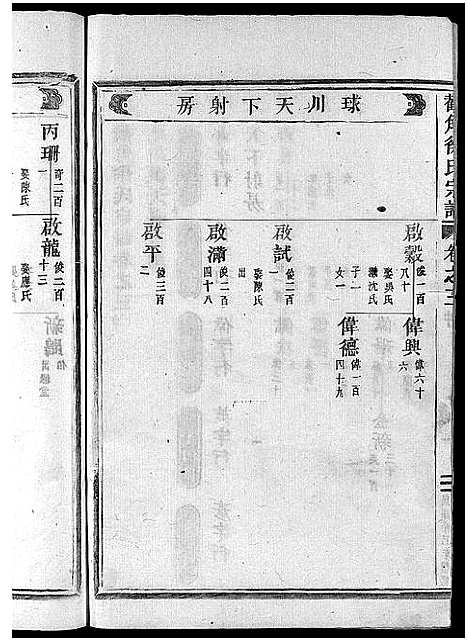 球川天下射房
徐氏宗譜
卷之二
啟穀
俊一百八十
娶吳氏
繼沈氏
子二
女一
偉興
偉六十六
偉德
偉一百四十九
啟試
俊二百一
娶陳氏
出
啟滿
俊二百四十八
啟平
俊三百二
丙珊
奇二百一
娶陳氏
啟龍
俊二百十三
娶應氏